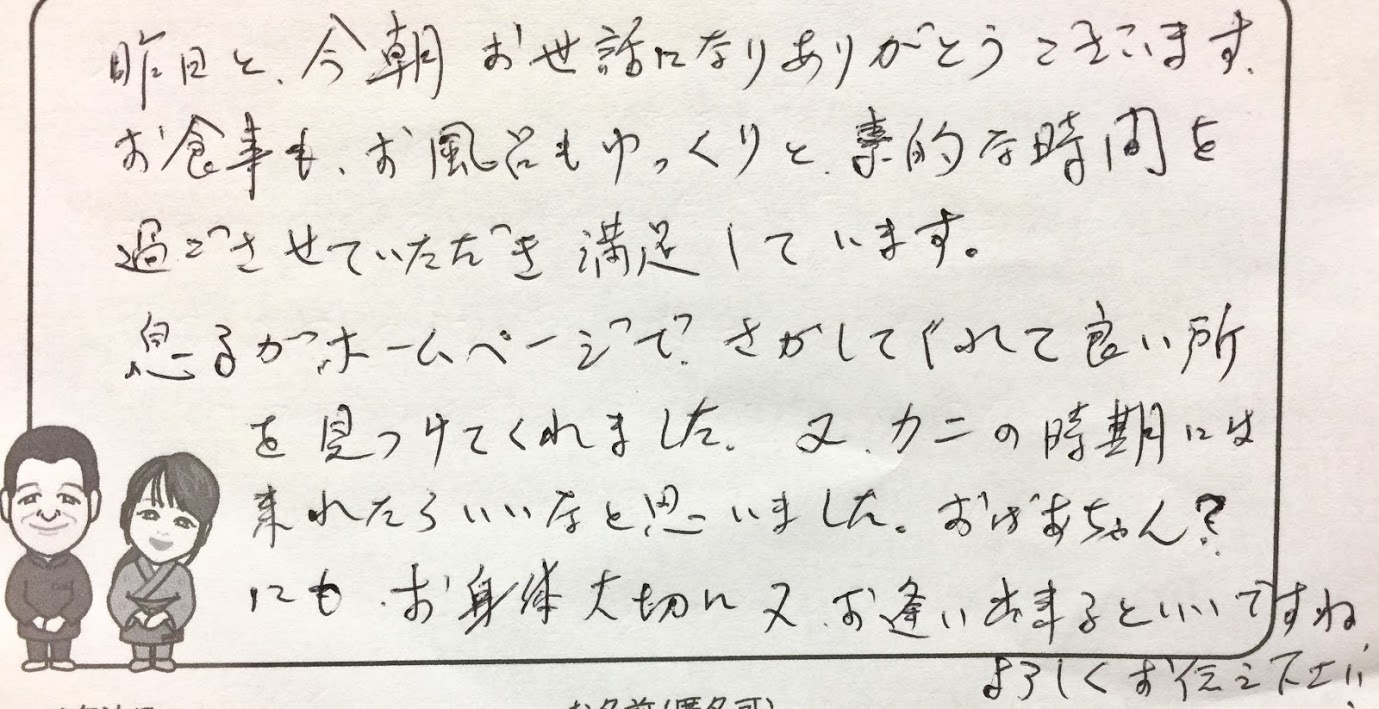 昨日と、今朝お世話になりありがとうございます、
お食事も、お風呂もゆっくりと、素的な時間を
過ごさせていただき満足しています。
息子がホームページで、さがしてくれて良い所
を見つけてくれました。又、カニの時期には
来れたらいいなと思いました。おばあちゃん?
にも、お身体大切に又、お逢い出来るといいですね
よろしくお伝え下さい
お名前(匿名可)